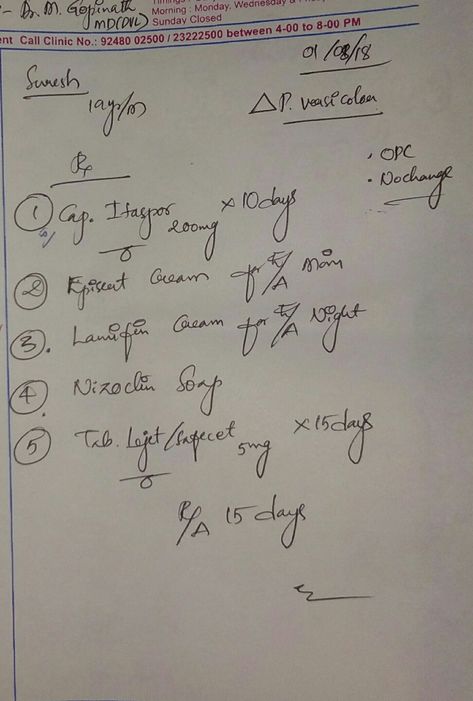 Dr. M. Gopinath
MD(DVL)
Morning : Monday, Wednesday &
Sunday Closed
Call Clinic No.: 92480 02500 / 23222500 between 4-00 to 8-00 PM
01/08/18
Suresh
19y/m
△ P. versicolor
Rx
• OPC
• No change
① Cap. Itaspor 200mg × 10 days
② Cream for E/A Morn
③. Lamifin Cream for E/A Night
④ Nizoclin Soap
⑤ Tab. Lejet/ 5mg × 15 days
R/A 15 days